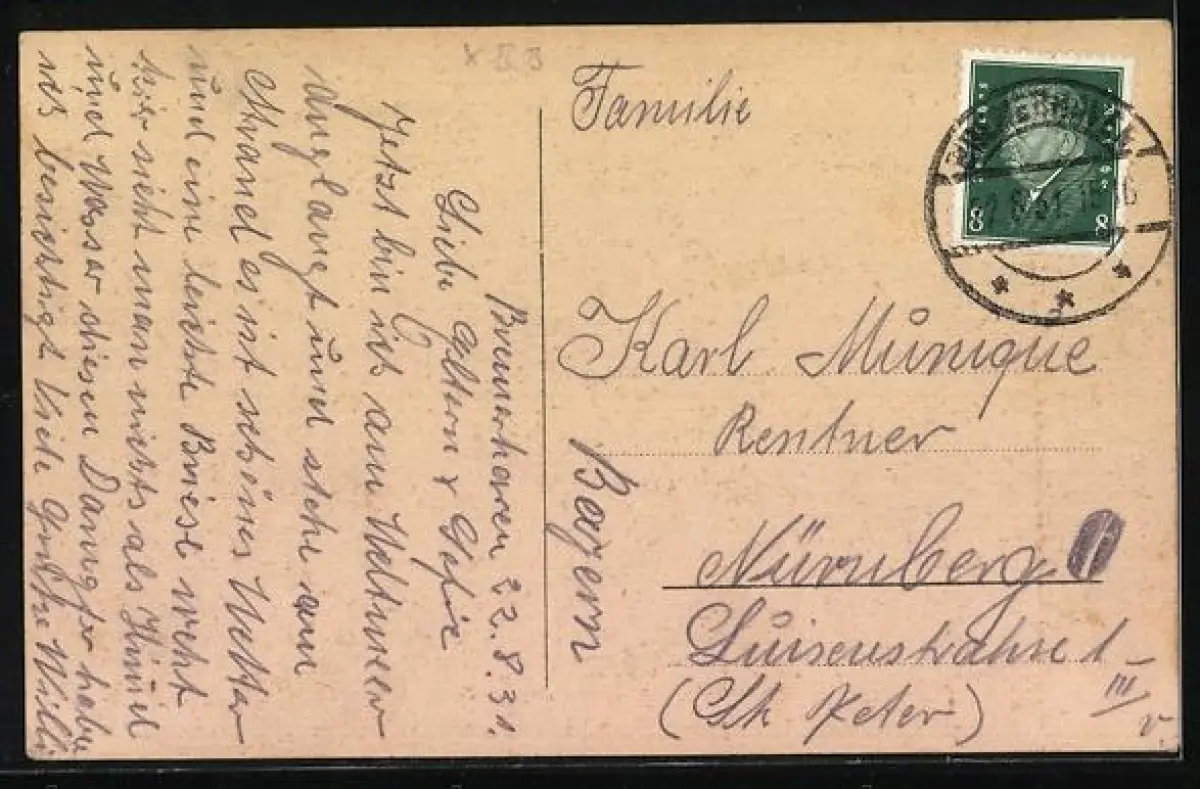 Bremerhaven 22.8.31.
Liebe Eltern & Sofie
Jetzt bin ich am Weltmeer
anglangt und stehe am
Strand es ist schönes Wetter
und eine leichte Briese weht
hier sieht man nichts als Himmel
und Wasser diesen Dampfer habe
ich besichtigt Viele Grüße Willi
Familie
Karl Münique
Rentner
Nürnberg
Luisenstrahse 1
III
(St. Peter)
Bayern
8 8